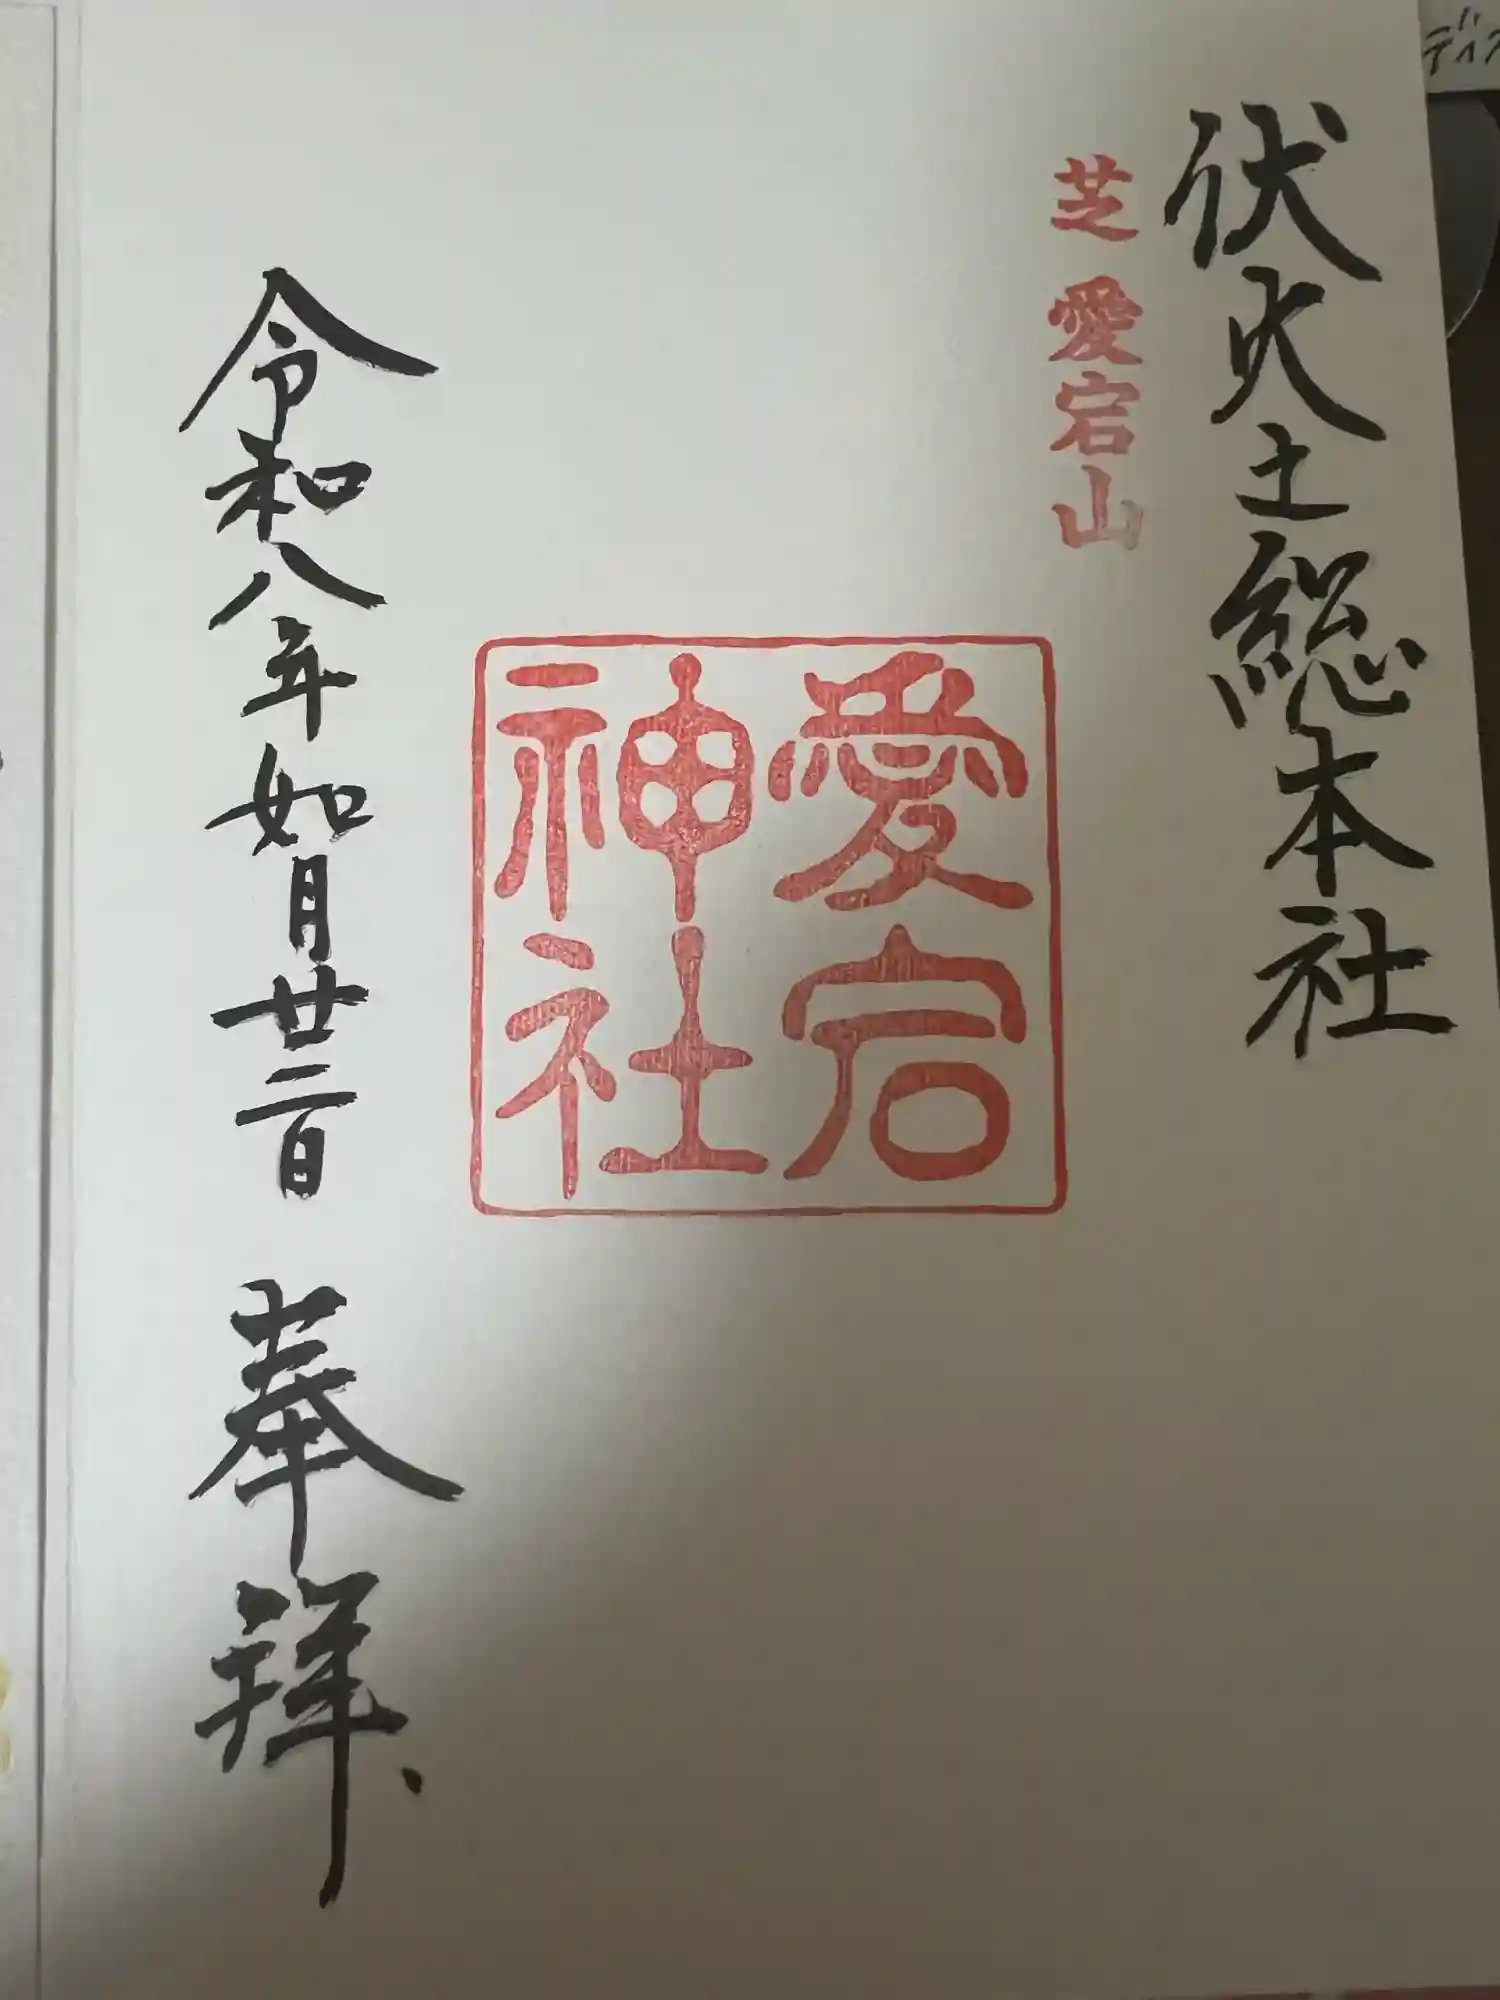 ディス
伏火之総本社
芝 愛宕山
愛宕
神社
令和八年如月廿二日 奉拝